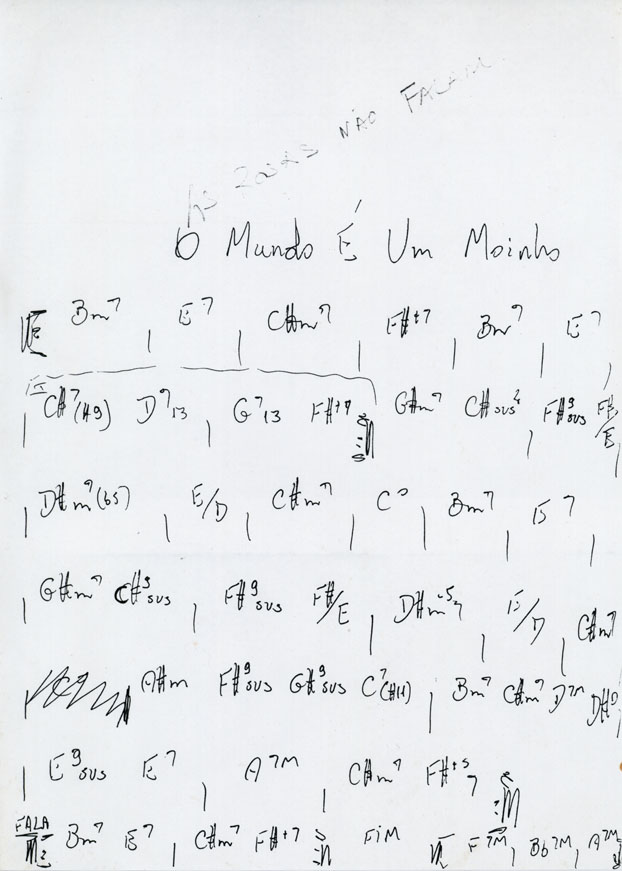 As Rosas Não Falam
O Mundo É Um Moinho
Bm7 | E7 | C#m7 | F#+7 | Bm7 | E7 |
| C#7(#9) D7 13 | G7 13 F#+7 G#m7 C#sus | F#9sus F#/E |
| D#m7(b5) | E/D | C#m7 | C° | Bm7 | E7 |
| G#m7 C#9sus | F#9sus F#/E | D#m-5 7 | E/D | C#m7
| A#m F#9sus G#9sus C7(#11) | Bm7 C#m7 D7M D#°
| E9sus E7 | A7M | C#m7 F#+5 7
FALA Bm7 E7 | C#m7 F#+7 FiM F7M | Bb7M | A7M